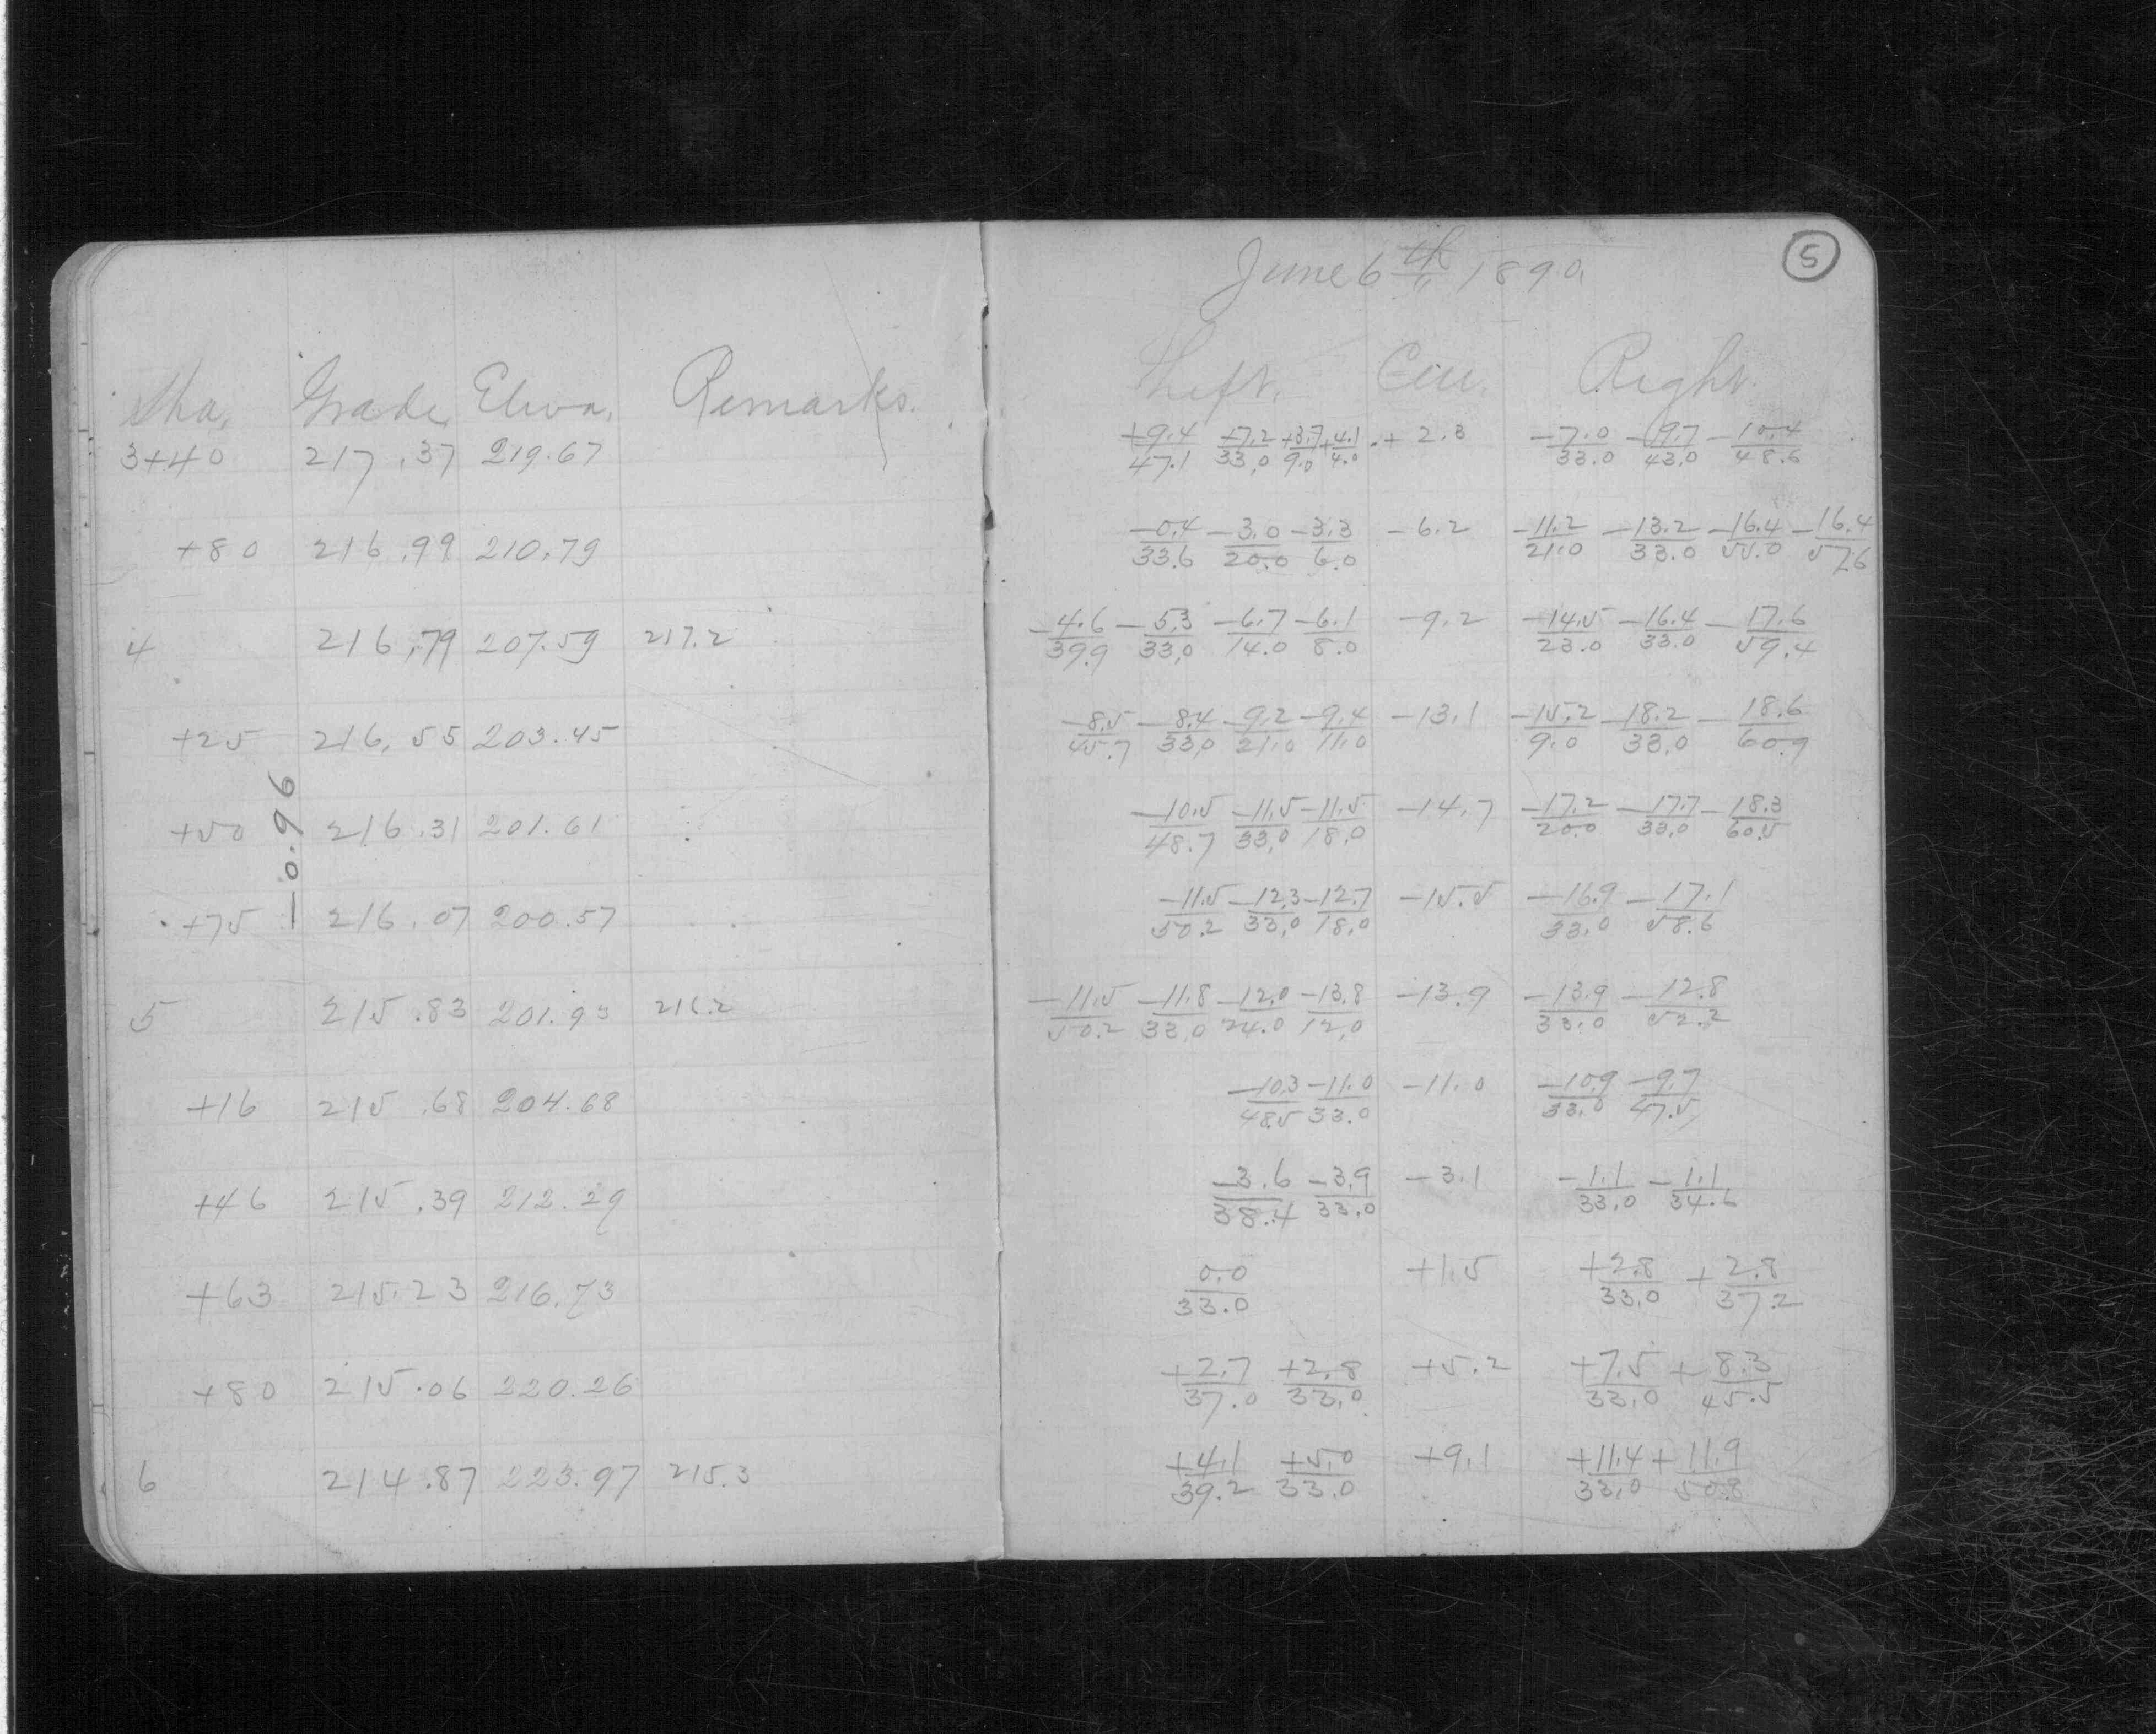 June 6th, 1890.
5
Sta. Grade Eleva. Remarks. Left. Cen. Right.
3+40 217.37 219.67 +9.4/47.1 +7.2/33.0 +3.7/9.0 +4.1/4.0 +2.3 -7.0/33.0 -9.7/43.0 -10.4/48.6
+80 216.99 210.79 -0.4/33.6 -3.0/20.0 -3.3/6.0 -6.2 -11.2/21.0 -13.2/33.0 -16.4/55.0 -16.4/57.6
4 216.79 207.59 217.2 -4.6/39.9 -5.3/33.0 -6.7/14.0 -6.1/8.0 -9.2 -14.5/23.0 -16.4/33.0 -17.6/59.4
+25 216.55 203.45 -8.5/45.7 -8.4/33.0 -9.2/21.0 -9.4/11.0 -13.1 -15.2/9.0 -18.2/33.0 -18.6/60.9
-0.96
+50 216.31 201.61 -10.5/48.7 -11.5/33.0 -11.5/18.0 -14.7 -17.2/20.0 -17.7/33.0 -18.3/60.5
+75 216.07 200.57 -11.5/50.2 -12.3/33.0 -12.7/18.0 -15.5 -16.9/33.0 -17.1/58.6
5 215.83 201.93 216.2 -11.5/50.2 -11.8/33.0 -12.0/24.0 -13.8/12.0 -13.9 -13.9/33.0 -12.8/52.2
+16 215.68 204.68 -10.3/48.5 -11.0/33.0 -11.0 -10.9/33.0 -9.7/47.5
+46 215.39 212.29 -3.6/38.4 -3.9/33.0 -3.1 -1.1/33.0 -1.1/34.6
+63 215.23 216.73 0.0/33.0 +1.5 +2.8/33.0 +2.8/37.2
+80 215.06 220.26 +2.7/37.0 +2.8/33.0 +5.2 +7.5/33.0 +8.3/45.5
6 214.87 223.97 215.3 +4.1/39.2 +5.0/33.0 +9.1 +11.4/33.0 +11.9/50.8